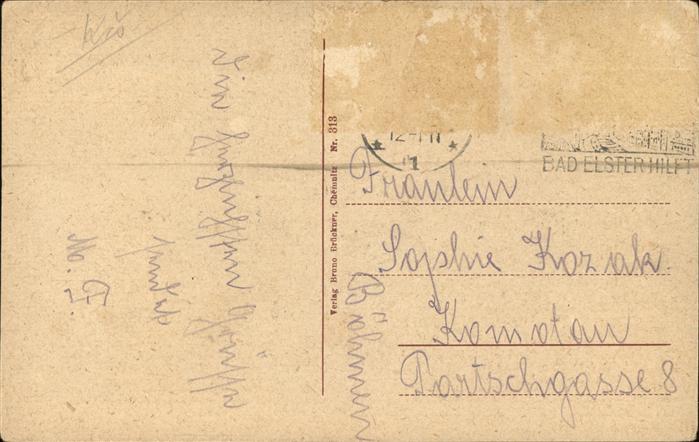 Kiš
Die herzlichsten Grüße
schickt
E. M.
Verlag Bruno Brückner, Chemnitz Nr. 313
12-1N
* 1 *
BAD ELSTER HILFT
Fräulein
Sophie Kozak
Komotau
Partschgasse 8
Böhmen